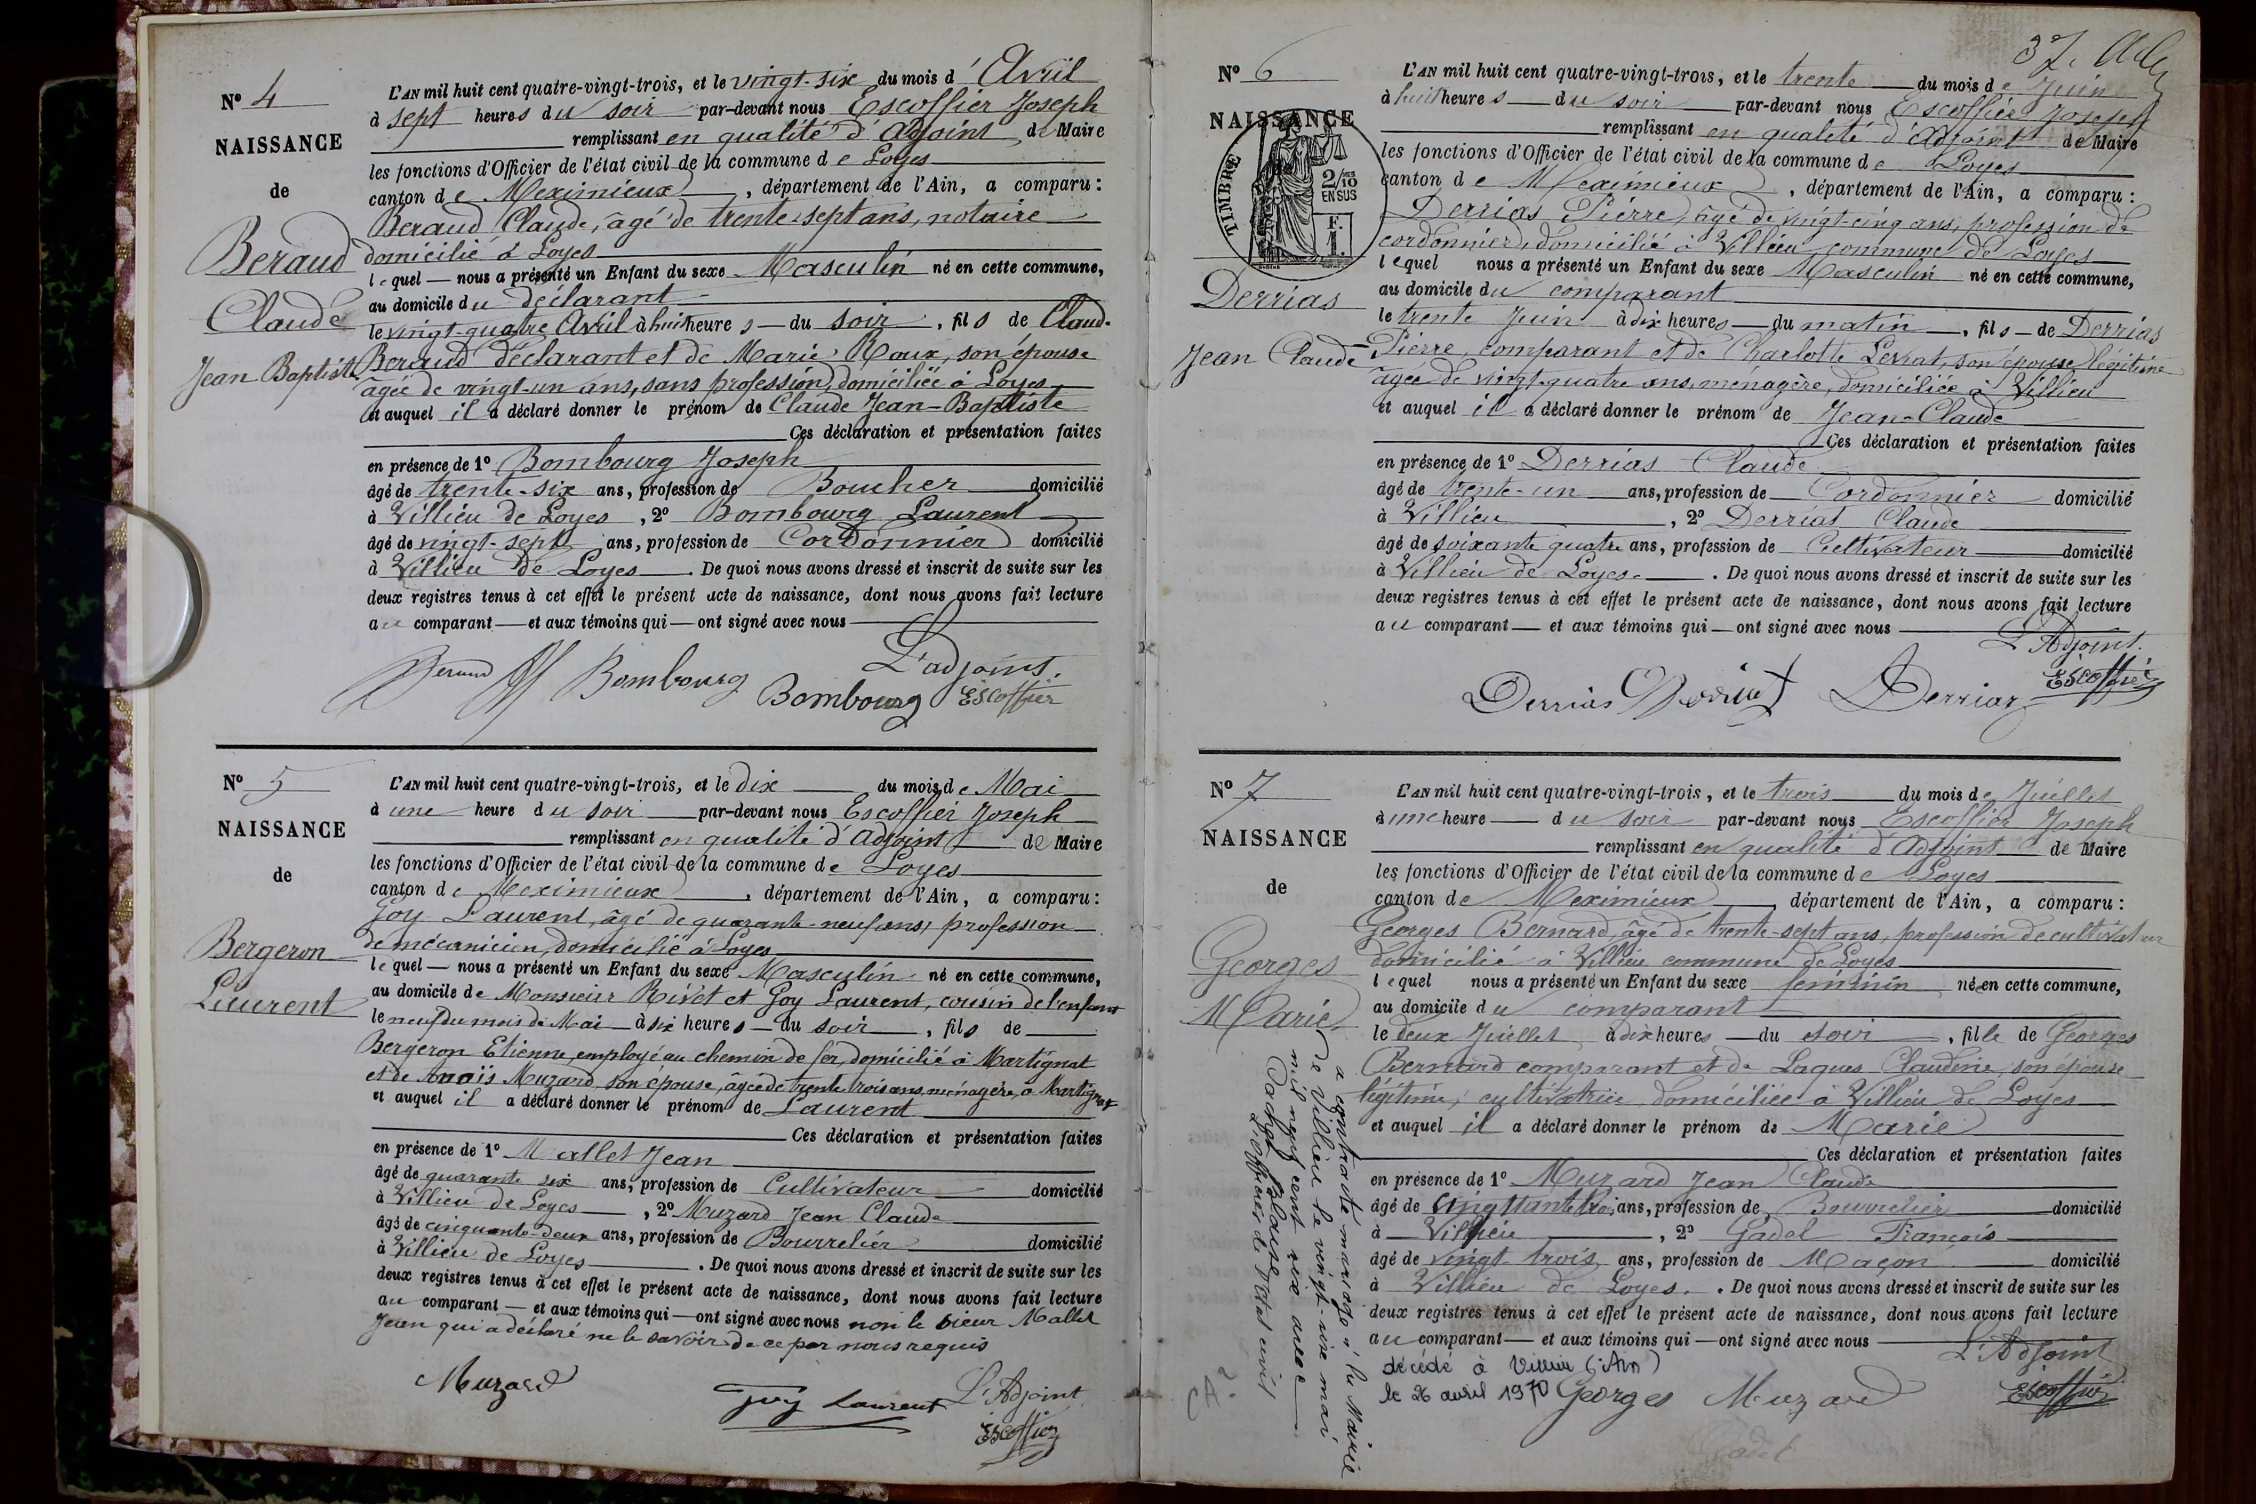 N° 4
NAISSANCE
de
Beraud
Claude
Jean Baptiste
L'AN mil huit cent quatre-vingt-trois, et le vingt-six du mois d'Avril
à sept heures du soir par-devant nous Escoffier Joseph
remplissant en qualité d'Adjoint de Maire
les fonctions d'Officier de l'état civil de la commune de Loyes
canton de Meximieux, département de l'Ain, a comparu :
Beraud Claude, âgé de trente-sept ans, notaire
domicilié à Loyes
lequel nous a présenté un Enfant du sexe Masculin né en cette commune,
au domicile du déclarant
le vingt-quatre Avril à huit heures du soir, fils de Claude
Beraud déclarant et de Marie Roux, son épouse
âgée de vingt-un ans, sans profession, domiciliée à Loyes
et auquel il a déclaré donner le prénom de Claude Jean-Baptiste
Ces déclaration et présentation faites
en présence de 1° Bombourg Joseph
âgé de trente-six ans, profession de Boucher domicilié
à Villieu de Loyes, 2° Bombourg Laurent
âgé de vingt-sept ans, profession de Cordonnier domicilié
à Villieu de Loyes. De quoi nous avons dressé et inscrit de suite sur les
deux registres tenus à cet effet le présent acte de naissance, dont nous avons fait lecture
au comparant et aux témoins qui ont signé avec nous
L'adjoint.
Beraud Bombourg Bombourg Escoffier
N° 5
NAISSANCE
de
Bergeron
Laurent
L'AN mil huit cent quatre-vingt-trois, et le dix du mois de Mai
à une heure du soir par-devant nous Escoffier Joseph
remplissant en qualité d'Adjoint de Maire
les fonctions d'Officier de l'état civil de la commune de Loyes
canton de Meximieux, département de l'Ain, a comparu :
Goy Laurent, âgé de quarante-neuf ans, profession
de mécanicien, domicilié à Loyes
lequel nous a présenté un Enfant du sexe Masculin né en cette commune,
au domicile de Monsieur Rivet et Goy Laurent, cousin de l'enfant
le neuf du mois de Mai à six heures du soir, fils de
Bergeron Etienne, employé au chemin de fer, domicilié à Martignat
et de Anaïs Muzard, son épouse, âgée de trente trois ans, ménagère, à Martignat
et auquel il a déclaré donner le prénom de Laurent
Ces déclaration et présentation faites
en présence de 1° Mallet Jean
âgé de quarante six ans, profession de Cultivateur domicilié
à Villieu de Loyes, 2° Muzard Jean Claude
âgé de cinquante-deux ans, profession de Bourrelier domicilié
à Villieu de Loyes. De quoi nous avons dressé et inscrit de suite sur les
deux registres tenus à cet effet le présent acte de naissance, dont nous avons fait lecture
au comparant et aux témoins qui ont signé avec nous non le sieur Mallet
Jean qui a déclaré ne le savoir de ce par nous requis
Muzard Goy Laurent L'Adjoint
Escoffier
37.
N° 6
NAISSANCE
TIMBRE
2/10 EN SUS
F. 1.
Derrias
Jean Claude
L'AN mil huit cent quatre-vingt-trois, et le trente du mois de Juin
à huit heures du soir par-devant nous Escoffier Joseph
remplissant en qualité d'Adjoint de Maire
les fonctions d'Officier de l'état civil de la commune de Loyes
canton de Meximieux, département de l'Ain, a comparu :
Derrias Pierre, âgé de vingt-cinq ans, profession de
cordonnier, domicilié à Villieu commune de Loyes
lequel nous a présenté un Enfant du sexe Masculin né en cette commune,
au domicile du comparant
le trente Juin à dix heures du matin, fils de Derrias
Pierre, comparant et de Charlotte Lerrat, son épouse légitime
âgée de vingt-quatre ans, ménagère, domiciliée à Villieu
et auquel il a déclaré donner le prénom de Jean-Claude
Ces déclaration et présentation faites
en présence de 1° Derrias Claude
âgé de trente-un ans, profession de Cordonnier domicilié
à Villieu, 2° Derrias Claude
âgé de soixante quatre ans, profession de Cultivateur domicilié
à Villieu de Loyes. De quoi nous avons dressé et inscrit de suite sur les
deux registres tenus à cet effet le présent acte de naissance, dont nous avons fait lecture
au comparant et aux témoins qui ont signé avec nous
L'Adjoint.
Derrias Derrias Derrias Escoffier
N° 7
NAISSANCE
de
Georges
Marie
L'AN mil huit cent quatre-vingt-trois, et le trois du mois de Juillet
à une heure du soir par-devant nous Escoffier Joseph
remplissant en qualité d'Adjoint de Maire
les fonctions d'Officier de l'état civil de la commune de Loyes
canton de Meximieux, département de l'Ain, a comparu :
Georges Bernard, âgé de trente-sept ans, profession de cultivateur
domicilié à Villieu commune de Loyes
lequel nous a présenté un Enfant du sexe féminin née en cette commune,
au domicile du comparant
le deux Juillet à dix heures du soir, fille de Georges
Bernard comparant et de Laques Claudine, son épouse
légitime, cultivatrice, domiciliée à Villieu de Loyes
et auquel il a déclaré donner le prénom de Marie
Ces déclaration et présentation faites
en présence de 1° Muzard Jean Claude
âgé de cinquante trois ans, profession de Bourrelier domicilié
à Villieu, 2° Gadel François
âgé de vingt trois ans, profession de Maçon domicilié
à Villieu de Loyes. De quoi nous avons dressé et inscrit de suite sur les
deux registres tenus à cet effet le présent acte de naissance, dont nous avons fait lecture
au comparant et aux témoins qui ont signé avec nous
L'Adjoint
décédé à Villieu (Ain)
le 26 avril 1970 Georges Muzard Escoffier
Gadel
a contracté mariage à la Mairie
de Villieu le vingt-six mai
mil neuf cent six avec
Blaise
l'officier de l'état civil